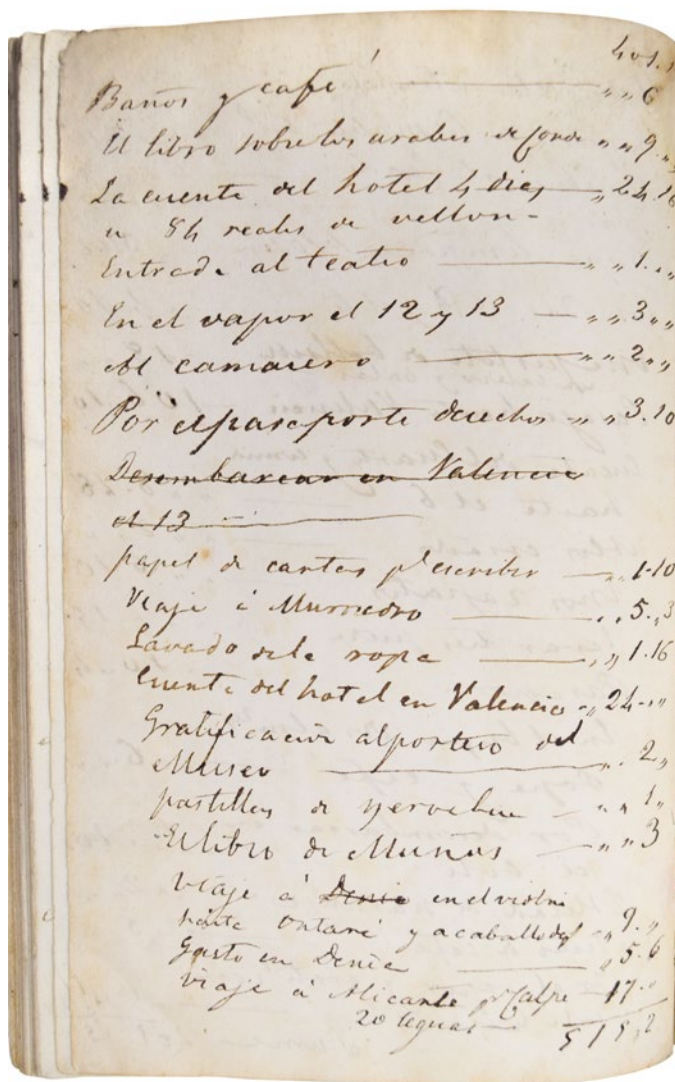 401.
Baños y café „ „ 6
El libro sobre los arabes de Conde „ „ 9 „
La cuenta del hotel 4 dias „ 24.16
a 84 reales de vellon -
Entrada al teatro „ „ 1 „ „
En el vapor el 12 y 13 „ „ 3 „ „
Al camarero „ „ 2 „ „
Por el pasaporte derechos „ „ 3.10
Desembarcar en Valencia
el 13
papel de cartas pa escribir „ 1.10
Viaje á Murviedro „ 5 „ 3
Lavado dela ropa „ 1.16
Cuenta del hotel en Valencia „ 24 „ „
Gratificacion al portero del
Museo „ 2 „
pastillas de yerva buena „ „ 1 „
El libro de Muños „ „ 3
Viaje á Denia en el
hasta y a caballo „ 9 „
Gasto en Denia „ 5.6
Viaje á Alicante pr Calpe 17 „
20 leguas 515,2